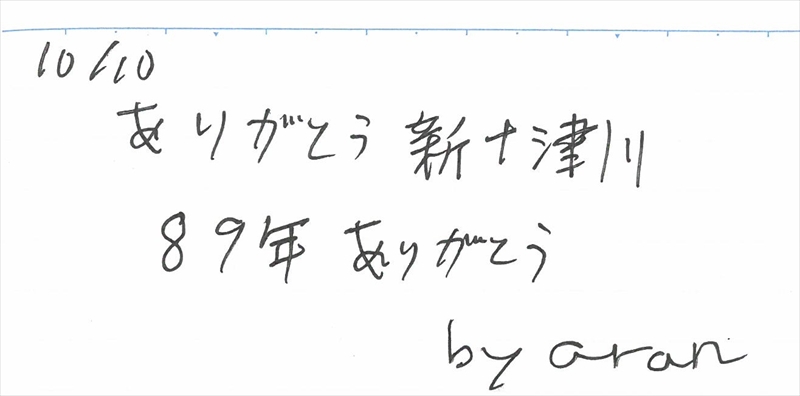 10/10
ありがとう新十津川
89年ありがとう
by aran